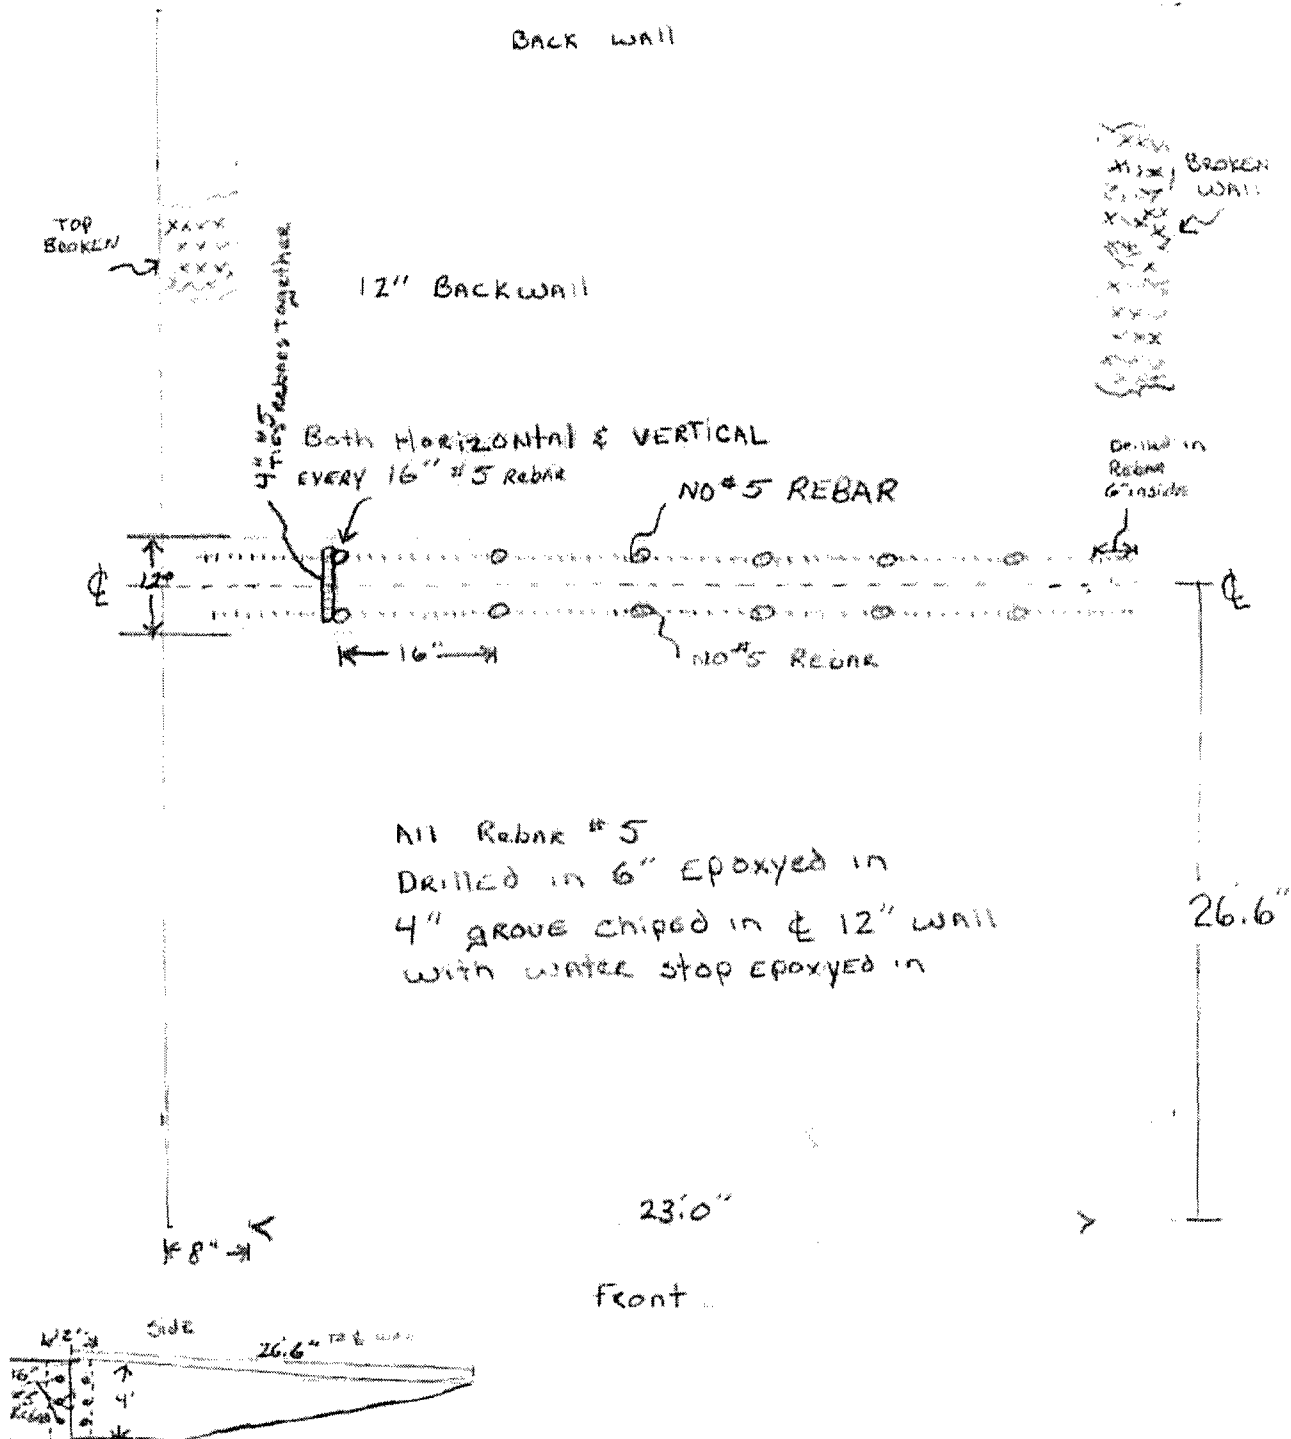 BACK WALL
BROKEN
WALL
TOP
BROKEN
12" BACKWALL
4" #5
TIES Rebars Together
Both Horizontal & VERTICAL
EVERY 16" #5 Rebar
Drilled in
Rebar
6" inside
NO #5 REBAR
℄
12"
℄
16"
NO #5 Rebar
All Rebar #5
Drilled in 6" Epoxyed in
4" grove chiped in ℄ 12" wall
with water stop Epoxyed in
26'.6"
23'.0"
8"
Front
Side
26'.6" To ℄ wall
16"
4'